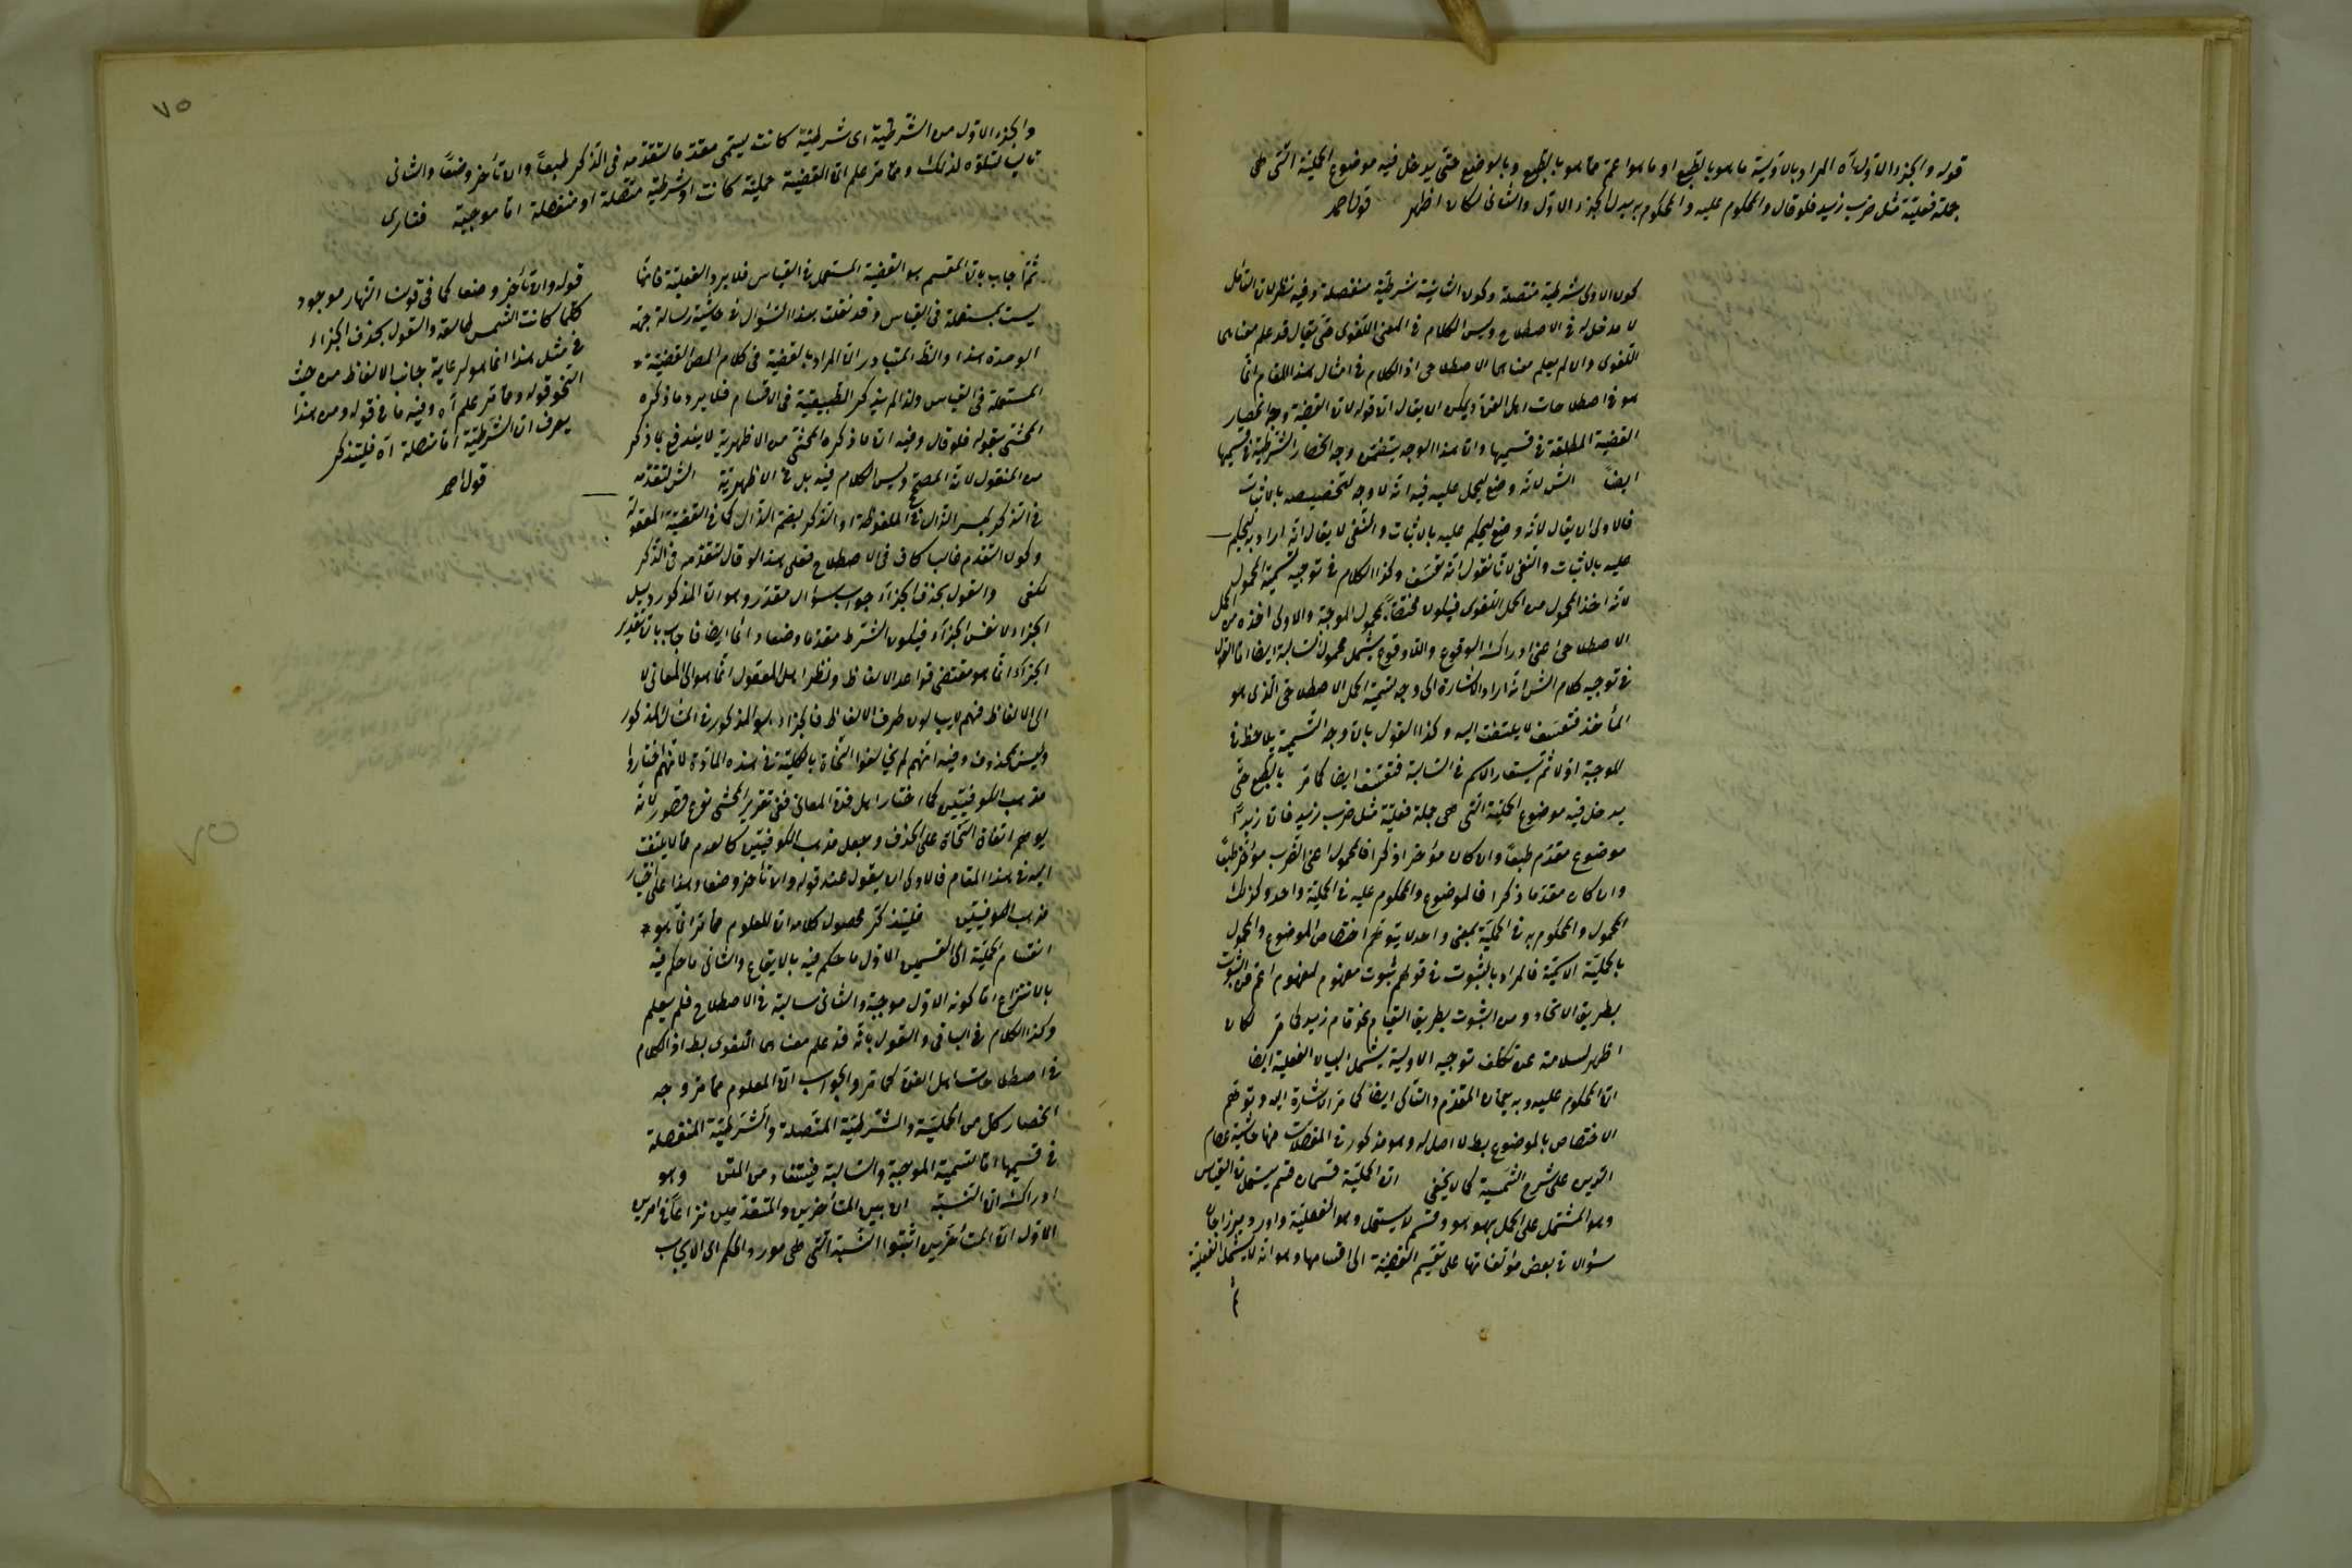 قوله والجزء الاول آه المراد بالاولية ما هو بالطبع او ما هو اعم مما هو بالطبع وبالوضع حتى يدخل فيه موضوع الحملية التى هى
جملة فعلية مثل ضرب زيد فلو قال والمحكوم عليه والمحكوم به بدل الجزء الاول والثانى لكان اظهر قول احمد
كون الاولى شرطية متصلة وكون الثانية شرطية منفصلة وفيه نظر لان التأمل
لا مدخل له فى الاصطلاح وليس الكلام فى المعنى اللغوى حتى يقال قد علم معناها
اللغوى وان لم يعلم معناها الاصطلاحى اذ الكلام فى امثال هذا المقام انما
هو فى اصطلاحات اهل الفن ويمكن ان يقال ان قوله لان القضية وجه انحصار
القضية المطلقة فى قسميها وان هذا الوجه يتضمن وجه انحصار الشرطية فى قسميها
ايضا الش لانه وضع ليحمل عليه فيه انه لا وجه لتخصيصه بالاثبات
فالاولى ان يقال لانه وضع ليحكم عليه بالاثبات والنفى لا يقال انه اراد به ليحكم
عليه بالاثبات والنفى لانا نقول انه تعسف وكذا الكلام فى توجيه تسمية المحمول
لانه اخذ المحمول من الحمل اللغوى فيكون مختصا بمحمول الموجبة والاولى اخذه من الحمل
الاصطلاحى اعنى ادراك الوقوع واللاوقوع يشمل محمول السالبة ايضا اما القول
فى توجيه كلام الش انه اراد الاشارة الى وجه تسمية الحمل الاصطلاحى الذى هو
المأخذ فتعسف لا يلتفت اليه وكذا القول بان وجه التسمية يلاحظ فى
الموجبة اولا ثم يستعار الاسم فى السالبة فتعسف ايضا كما مر بالطبع حتى
يدخل فيه موضوع الحملية التى هى جملة فعلية مثل ضرب زيد فان زيدا
موضوع مقدم طبعا وان كان مؤخرا ذكرا فالمحمول اعنى الضرب مؤخر طبعا
وان كان مقدما ذكرا فالموضوع والمحكوم عليه فى الحملية واحد وكذلك
المحمول والمحكوم به فى الحملية بمعنى واحد لا يتوهم اختصاص الموضوع والمحمول
بالحملية الاسمية فالمراد بالثبوت فى قولهم ثبوت مفهوم لمفهوم اعم من الثبوت
بطريق الاتحاد ومن الثبوت بطريق القيام نحو قام زيد كما مر لكان
اظهر لسلامته عن تكلف توجيه الاولية يشمل البيان الفعلية ايضا
ان المحكوم عليه وبه يعمان المقدم والتالى ايضا كما مر الاشارة اليه وتوهم
الاختصاص بالموضوع بط لا اصل له وهو مذكور فى المفصلات منها حاشية عصام
الدين على شرح الشمسية كما لا يخفى ان الحملية قسمان قسم يستعمل فى القياس
وهو المشتمل على الحمل بهو هو وقسم لا يستعمل وهو الفعلية واورد ميرزاجان
سؤالا فى بعض مؤلفاتها على تقسيم القضية الى اقسامها وهو انه لا يشمل الفعلية
ثم
٧٥
والجزء الاول من الشرطية اى شرطية كانت يسمى مقدما لتقدمه فى الذكر طبعا وان تأخر وضعا والثانى
تاليا لتلوه لذلك ومما مر علم ان القضية حملية كانت او شرطية متصلة او منفصلة اما موجبة فنارى
ثم اجاب بان المقسم هو القضية المستعملة فى القياس فلا يرد الفعلية فانها
ليست بمستعملة فى القياس وقد نقلت هذا السؤال فى حاشية رسالة جهة
الوحدة هذا والظ المتبادر ان المراد بالقضية فى كلام المص القضية
المستعملة فى القياس ولذا لم يذكر الطبيعية فى الاقسام فلا يرد ما ذكره
المحشى بقوله فلو قال وفيه ان ما ذكره المحشى من الاظهرية لا يندفع بما ذكر
من المنقول لانه المصحح وليس الكلام فيه بل فى الاظهرية الش لتقدمه
فى الذكر بكسر الذال فى الملفوظة او الذكر بضم الذال كما فى القضية المعقولة
وكون التقدم غالبا كاف فى الاصطلاح فعلى هذا لو قال لتقدمه فى الذكر
لكفى والقول بحذف الجزاء جواب سؤال مقدر وهو ان المذكور دليل
الجزاء لا نفس الجزاء فيكون الشرط مقدما وضعا دائما ايضا فاجاب بان تقدير
الجزاء انما هو مقتضى قواعد الالفاظ ونظر اهل المعقول انما هو الى المعانى لا
الى الالفاظ فهم لا يبالون طرف الالفاظ فالجزاء هو المذكور فى المثال المذكور
وليس بمحذوف وفيه انهم لم يخالفوا النحاة بالكلية فى هذه المادة لانهم اختاروا
مذهب الكوفيين كما اختار اهل فن المعانى ففى تقرير المحشى نوع قصور لانه
يوهم اتفاق النحاة على الحذف وجعل مذهب الكوفيين كالعدم مما لا يلتفت
اليه فى هذا المقام فالاولى ان يقول عند قوله وان تأخر وضعا وهذا على اختيار
مذهب الكوفيين فليتذكر محصول كلامه ان المعلوم مما مر انما هو
انقسام الحملية الى القسمين الاول ما حكم فيه بالايقاع والثانى ما حكم فيه
بالانتزاع اما كونه الاول موجبة والثانى سالبة فى الاصطلاح فلم يعلم
وكذا الكلام فى الباقى والقول بانه قد علم معناها اللغوى بط اذ الكلام
فى اصطلاحات اهل الفن كما مر والجواب ان المعلوم مما مر وجه
انحصار كل من الحملية والشرطية المتصلة والشرطية المنفصلة
فى قسميها اما تسمية الموجبة والسالبة فيستفاد من المتن وهو
ادراك ان النسبة ان بين المتأخرين والمتقدمين نزاعا فى امرين
الاول ان المتأخرين اثبتوا النسبة التى هى مورد الحكم اى الايجاب
قوله وان تأخر وضعا كما فى قولنا النهار موجود
كلما كانت الشمس طالعة والقول بحذف الجزاء
فى مثل هذا انما هو لرعاية جانب الالفاظ من حيث
النحو قوله ومما مر علم آه وفيه ما فى قوله ومن هذا
يعرف ان الشرطية اما متصلة آه فليتذكر
قول احمد